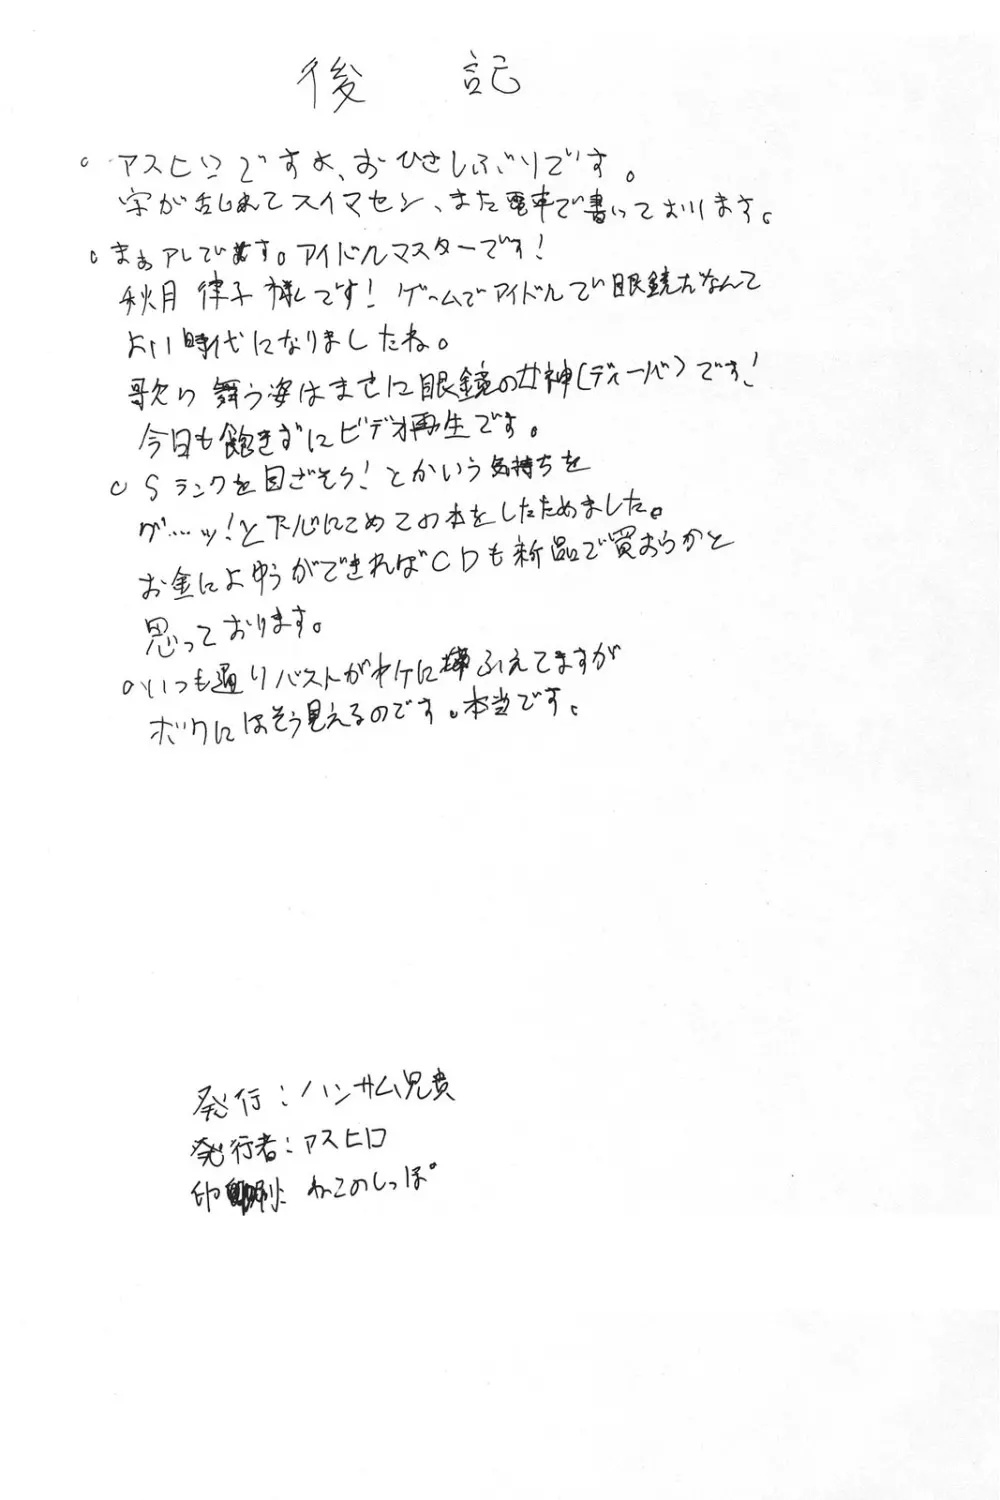 後記
○アスヒロですよ、おひさしぶりです。
字が乱れてスイマセン、また電車で書いております。
○まぁアレです。アイドルマスターです!
秋月律子様です!ゲームでアイドルで眼鏡だなんて
よい時代になりましたね。
歌い舞う姿はまさに眼鏡の女神(ディーバ)です!
今日も飽きずにビデオ再生です。
○Sランクを目ざそう!とかいう気持ちを
グ…ッ!と下心にこめてこの本をしたためました。
お金によゆうができればCDも新品で買おうかと
思っております。
○いつも通りバストがヤケにふえてますが
ボクにはそう見えるのです。本当です。
発行:ハンサム兄貴
発行者:アスヒロ
印刷:ねこのしっぽ